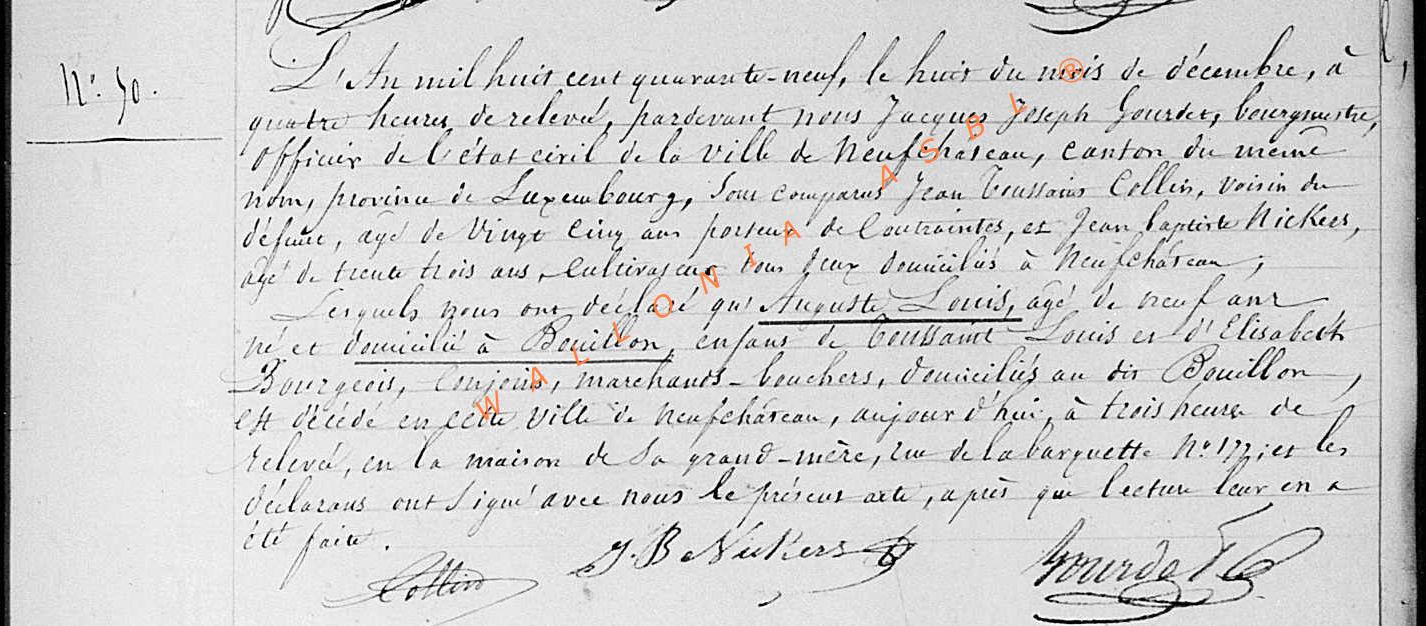 N° 50.
L'An mil huit cent quarante-neuf, le huit du mois de décembre, à
quatre heures de relevée, pardevant nous Jacques Joseph Gourdet, bourgmestre,
officier de l'état civil de la ville de Neufchâteau, canton du même
nom, province de Luxembourg, sont comparus Jean Toussaint Collin, voisin du
défunt, âgé de vingt cinq ans porteur de contraintes, et Jean baptiste Nickers,
âgé de trente trois ans, cultivateur tous deux domiciliés à Neufchâteau ;
Lesquels nous ont déclaré qu' Auguste Louis, âgé de neuf ans
né et domicilié à Bouillon, enfant de Toussaint Louis et d'Elisabeth
Bourgeois, conjoins, marchands-bouchers, domiciliés au dit Bouillon,
est décédé en cette ville de Neufchâteau, aujourd'hui, à trois heures de
relevée, en la maison de sa grand-mère, rue de la barquette N° 177; et les
déclarans ont signé avec nous le présent acte, après que lecture leur en a
été faite.
Collin J. B Nickers Gourdet
WALLONIA ASBL ®